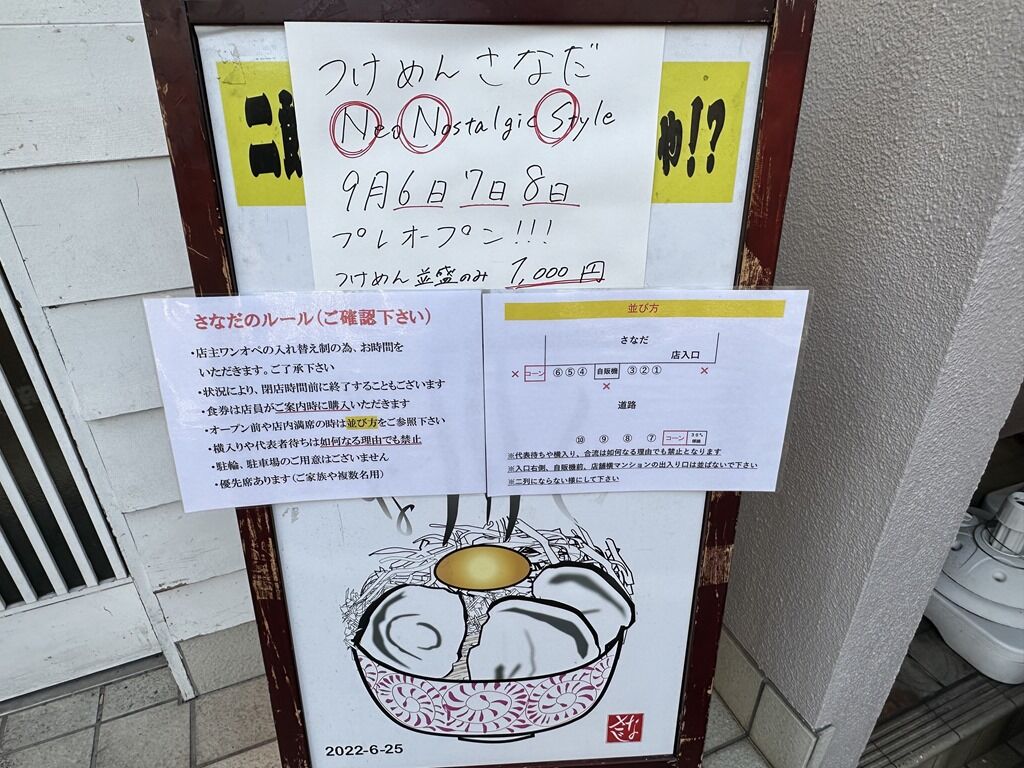 つけめんさなだ
Neo Nostalgic Style
9月6日7日8日
プレオープン!!!
つけめん並盛のみ 1,000円
二郎
!?
さなだのルール(ご確認下さい)
・店主ワンオペの入れ替え制の為、お時間を
いただきます。ご了承下さい
・状況により、閉店時間前に終了することもございます
・食券は店員がご案内時に購入いただきます
・オープン前や店内満席の時は並び方をご参照下さい
・横入りや代表者待ちは如何なる理由でも禁止
・駐輪、駐車場のご用意はございません
・優先席あります(ご家族や複数名用)
並び方
さなだ
店入口
× コーン ⑥⑤④ 自販機 ③②① ×
×
道路
⑩ ⑨ ⑧ ⑦ コーン
※代表待ちや横入り、合流は如何なる理由でも禁止となります
※入口右側、自販機前、店舗横マンションの出入り口は並ばないで下さい
※二列にならない様にして下さい
さなだ
2022-6-25